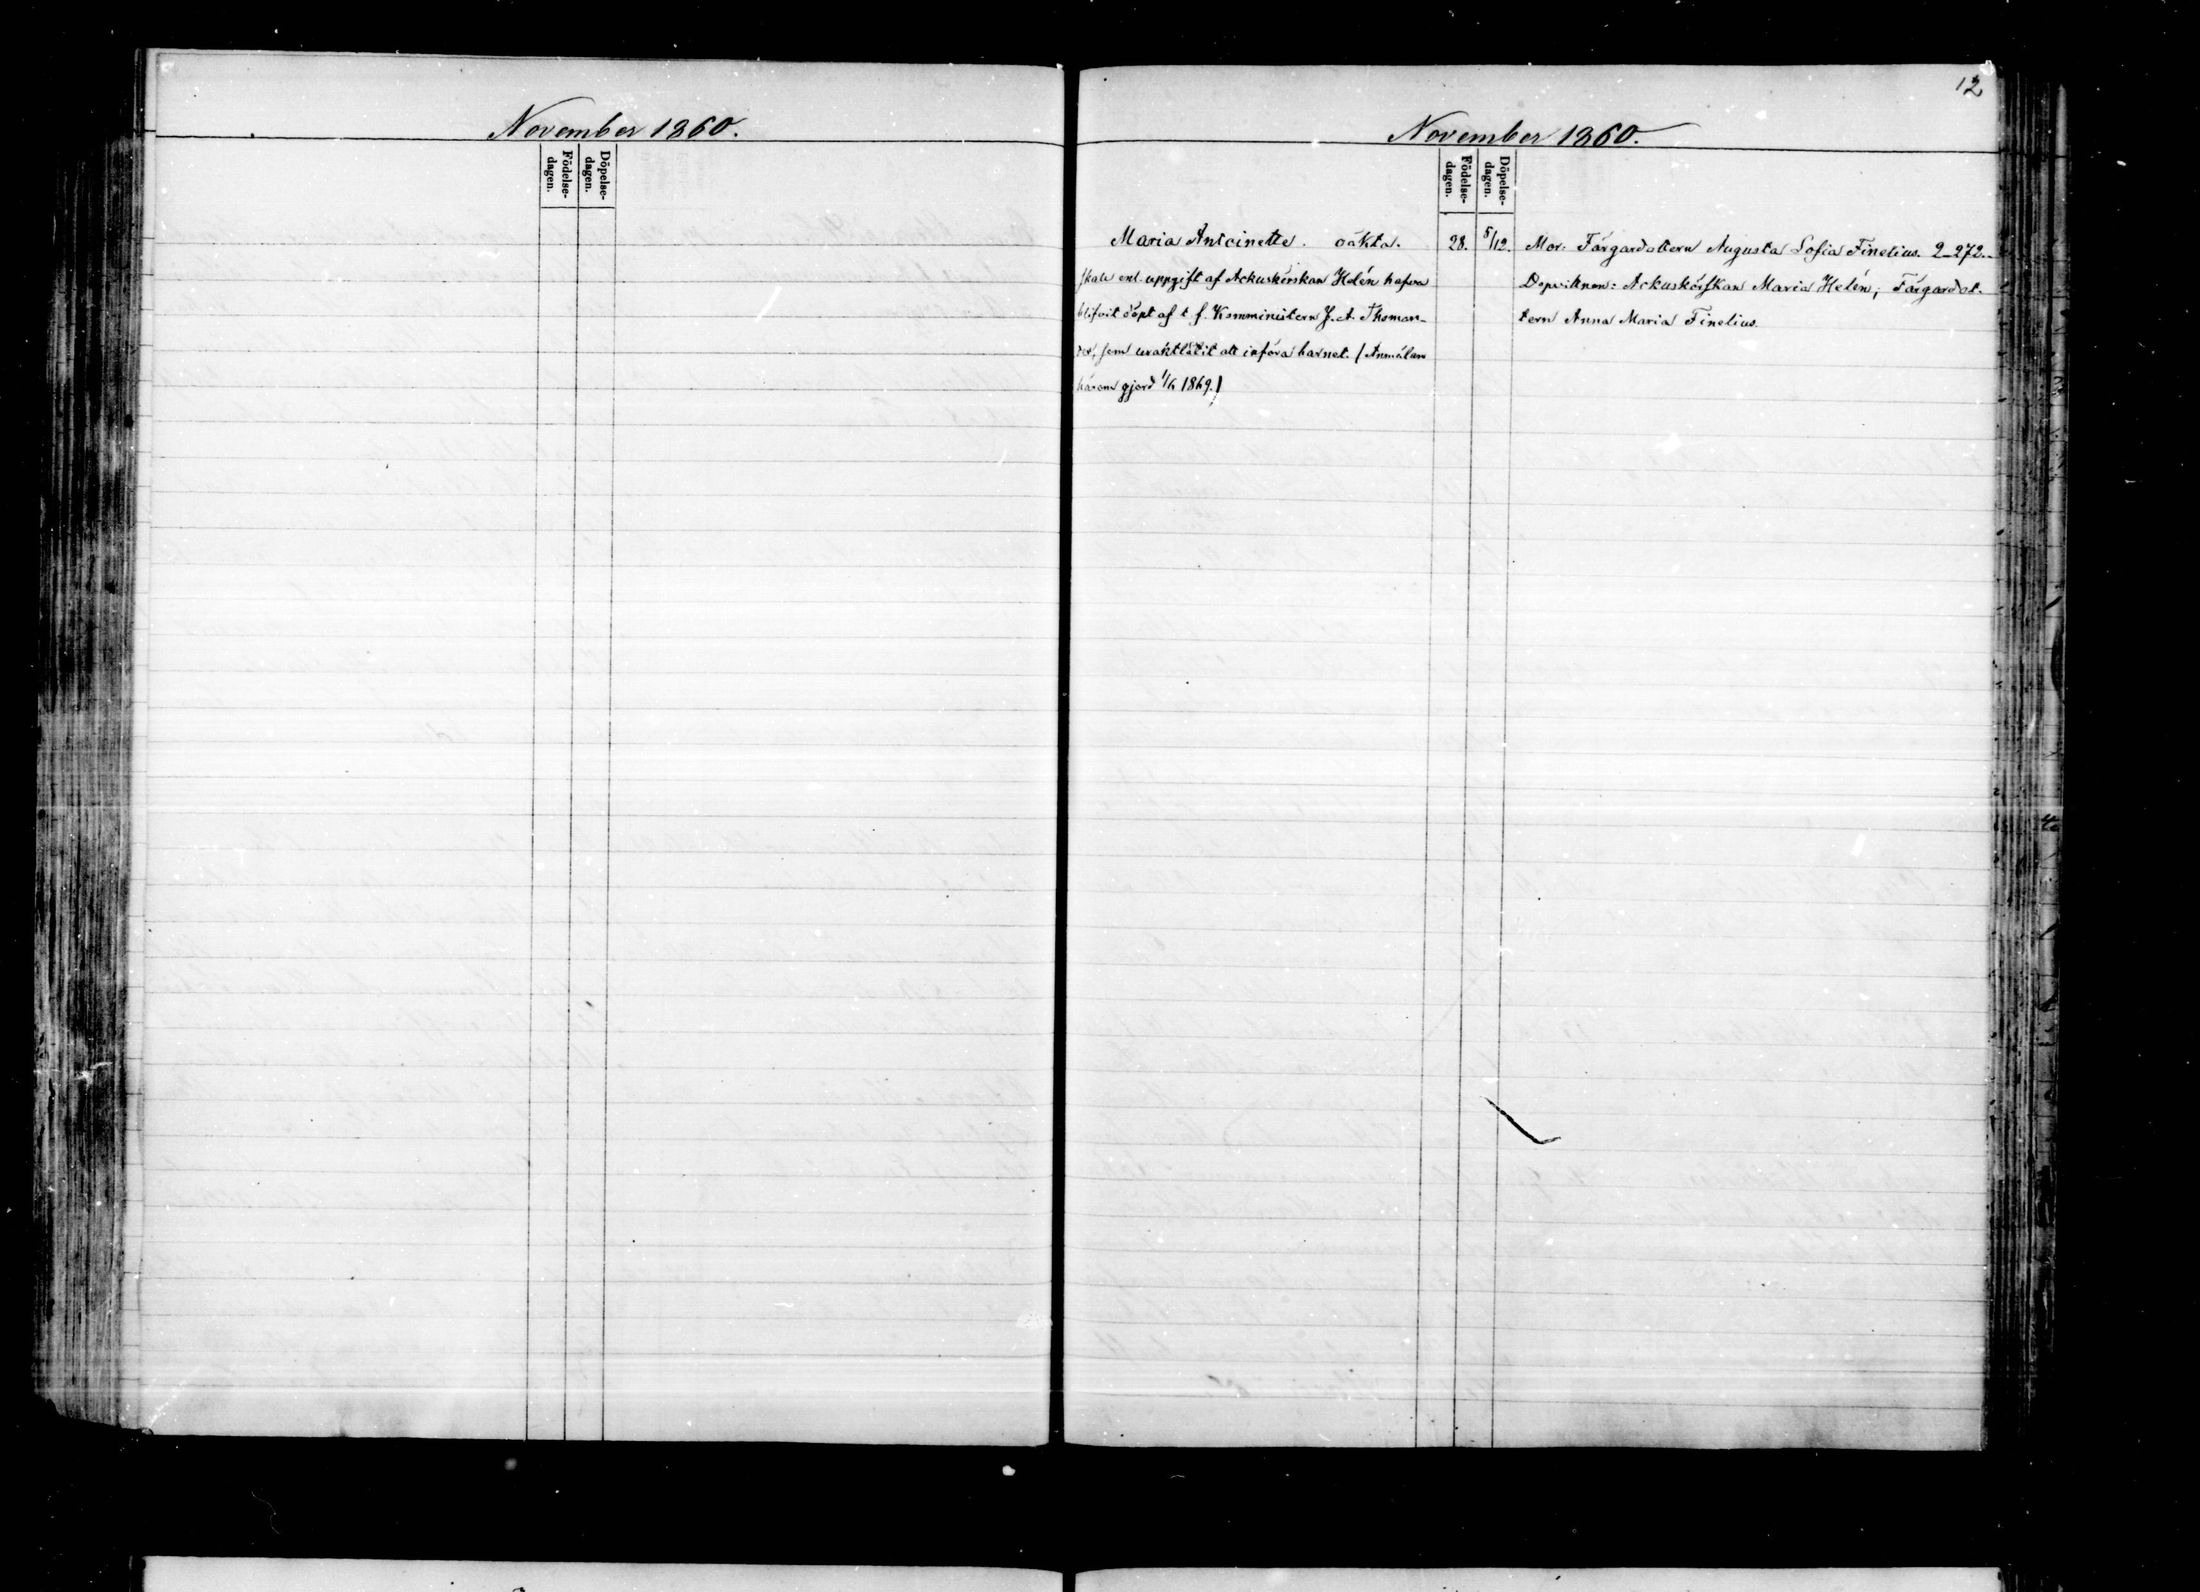 November 1860.
Födelse-
dagen.
Döpelse-
dagen.
12
November 1860.
Födelse-
dagen.
Döpelse-
dagen.
Maria Antoinette. oäkta. 28. 8/12. Mor: Färgardottern Augusta Sofia Finelius. 2-272.
skall enl. uppgift af Ackuskörskan Helén hafva Dopvittnen: Ackuskörskan Maria Helén; Färgardot-
blifvit döpt af t. f. Komministern J. A. Thoman- tern Anna Maria Finelius.
der, som uraktlåtit att införa barnet. (Anmälan
härom gjord 1869.)